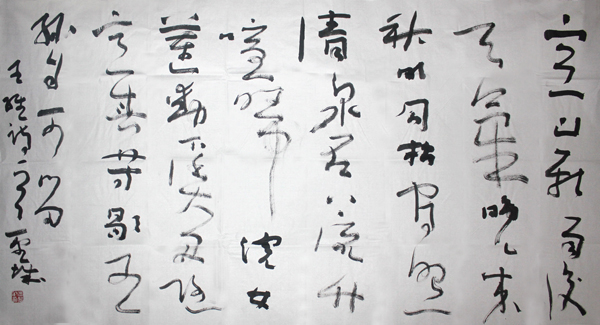 空山新雨後
天氣晚來
秋明月松間照
清泉石上流竹
喧歸浣女
蓮動下漁舟隨
意春芳歇王
孫自可留
王維詩一首